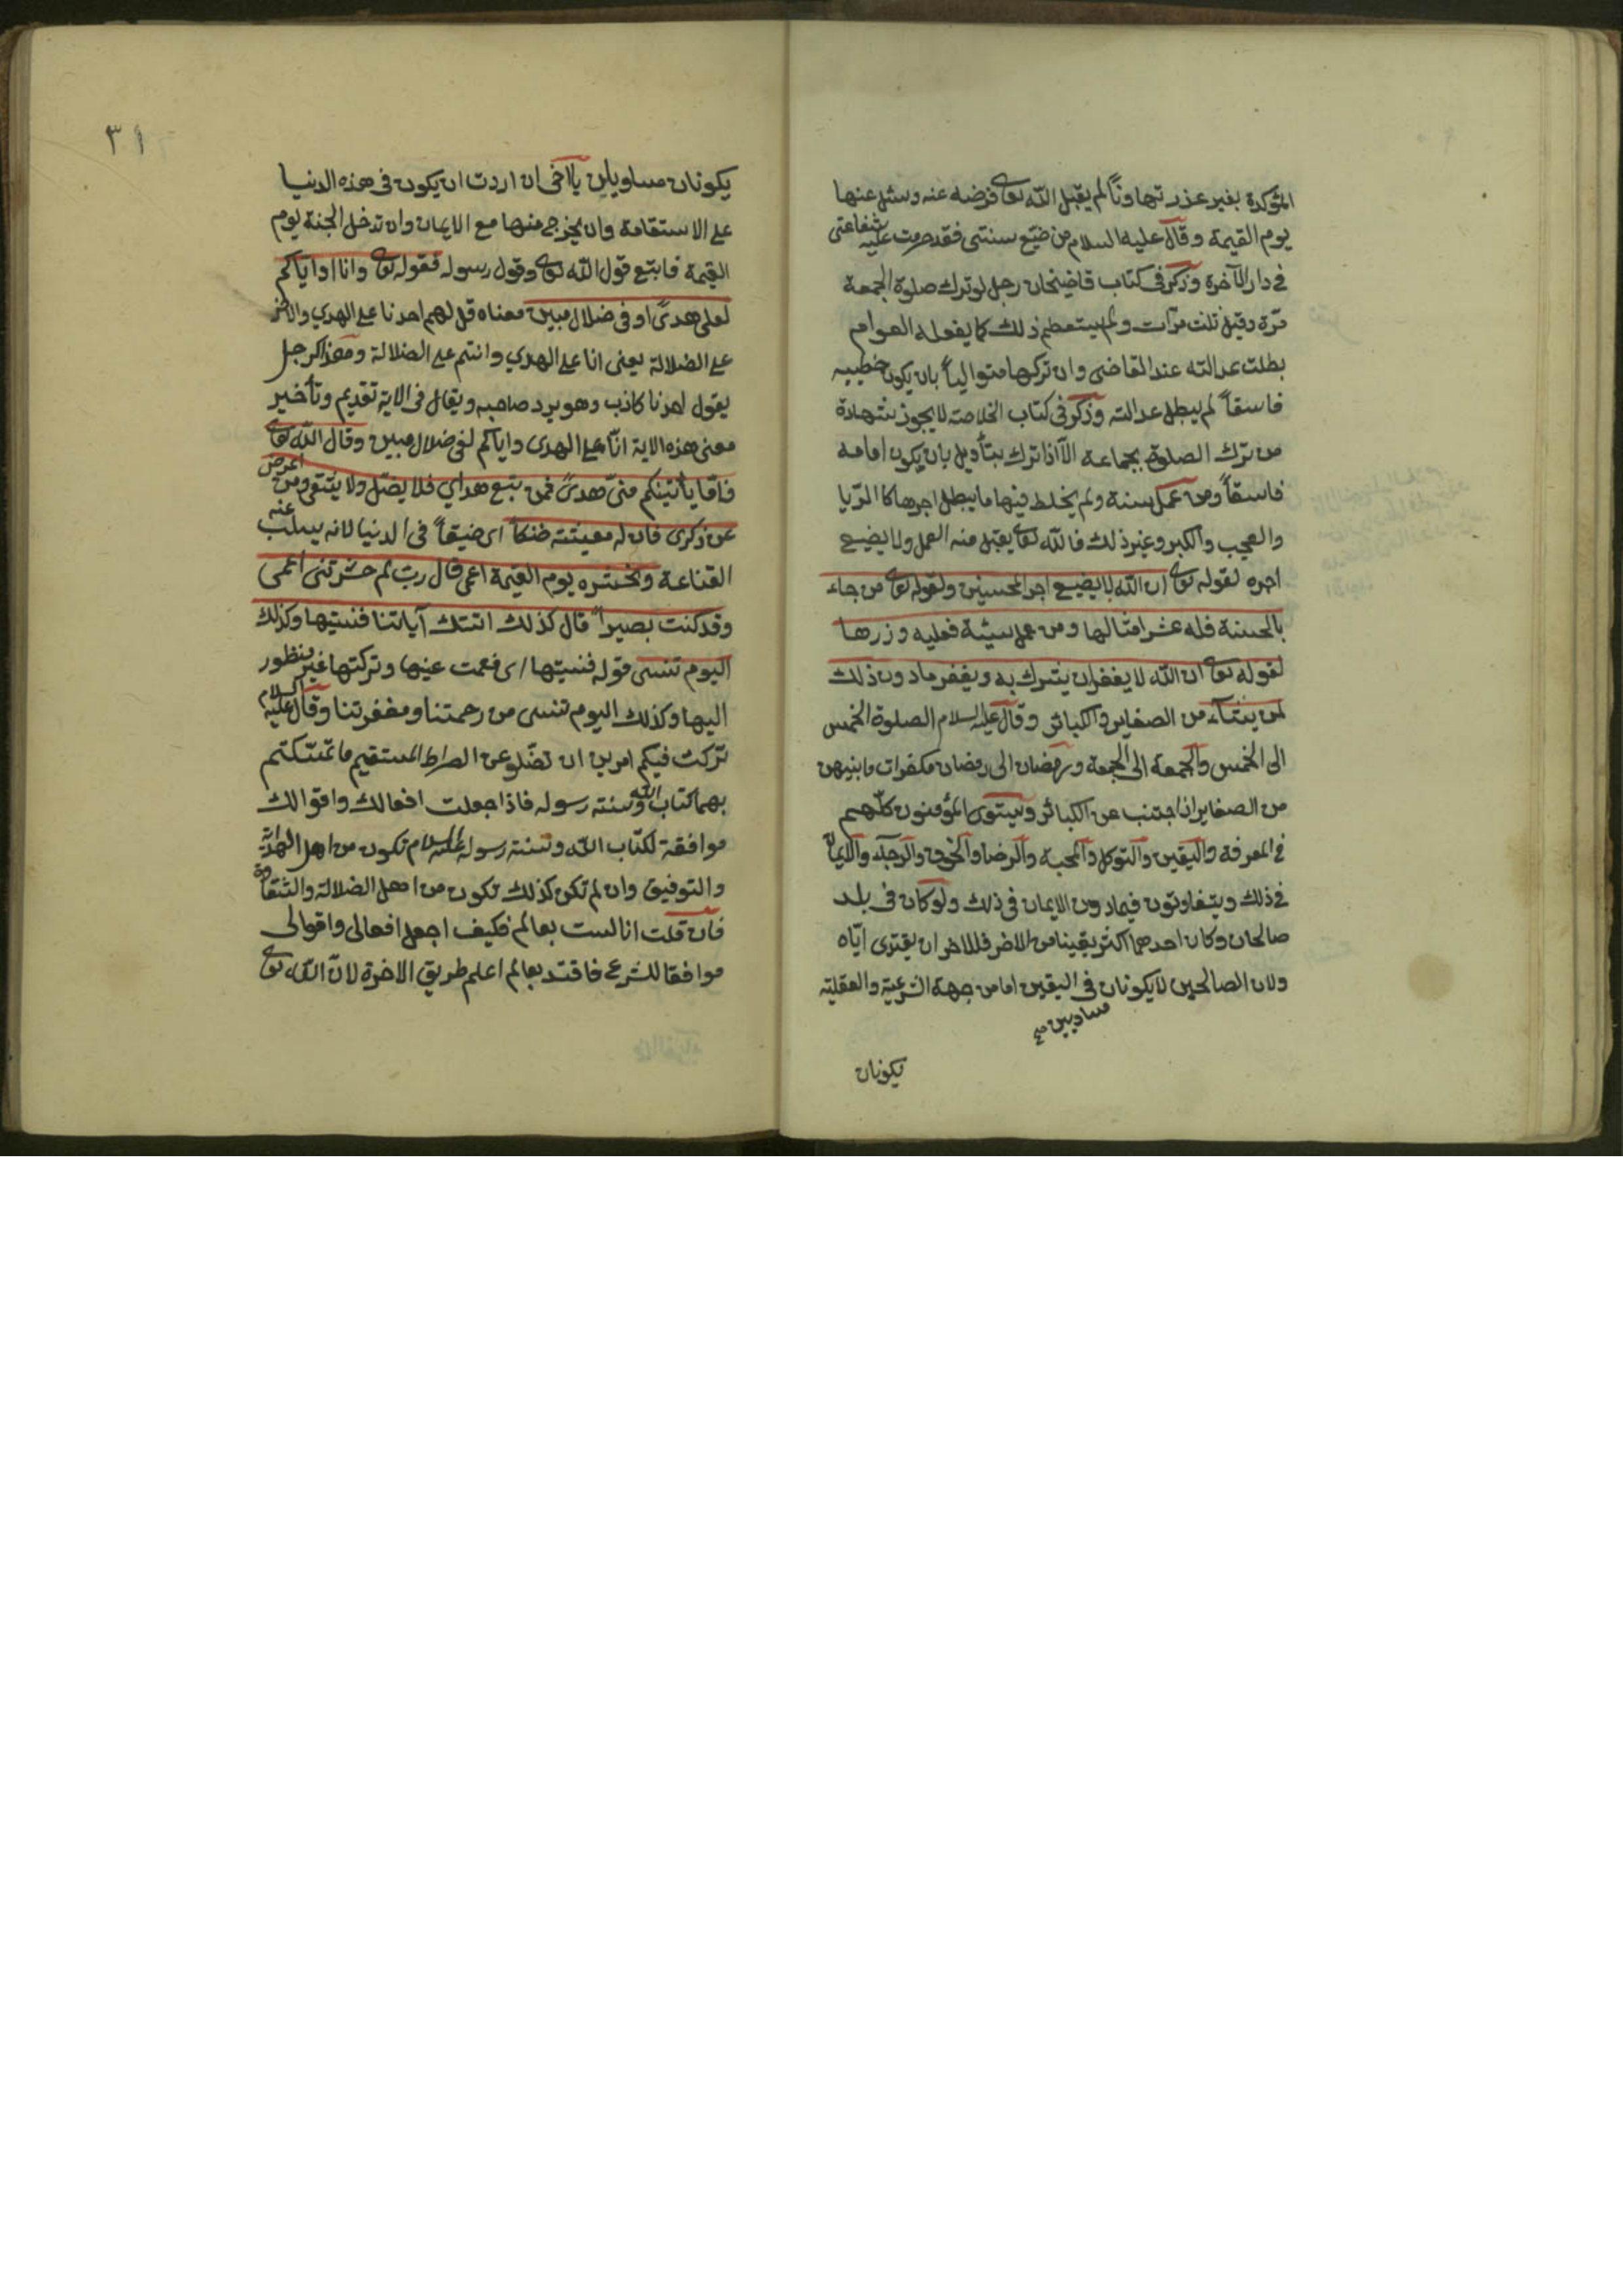 المؤكدة بغير عذر تهاونًا لم يقبل الله تعا فرضه عنه وسئل عنها
يوم القيمة وقال عليه السلام من ضيّع سنتى فقد حرمت عليه شفاعتى
فى دار الآخرة وذكر فى كتاب قاضيخان رجل لو ترك صلوة الجمعة
مرّة وقيل ثلث مرّات ولم يستعظم ذلك كما يفعله العوام
بطلت عدالته عند القاضى وان تركها متوالياً بان يكون خطيبه
فاسقاً لم يبطل عدالته وذكر فى كتاب الخلاصة لا يجوز شهادة
من ترك الصلوة بجماعة الا اذا ترك بتأويل بان يكون امامه
فاسقاً ومن عمل سنة ولم يخلط فيها ما يبطل اجرها كا الرّيا
والعجب والكبر وغير ذلك فالله تعا يقبل منه العمل ولا يضيع
اجره لقوله تعا ان الله لا يضيع اجر المحسنين ولقوله تعا من جاء
بالحسنة فله عشر امثالها ومن عمل سيئة فعليه وزرها
لقوله تعا ان الله لا يغفر ان يشرك به ويغفر ما دون ذلك
لمن يشآء من الصغاير والكبائر وقال عليه السلام الصلوة الخمس
الى الخمس والجمعة الى الجمعة ورمضان الى رمضان مكفرات ما بينهن
من الصغاير اذا اجتنب عن الكبائر ويستوى المؤمنون كلّهم
فى المعرفة واليقين والتوكل والمحبة والرضا والخوف والرجآء والايمان
فى ذلك ويتفاوتون فيما دون الايمان فى ذلك ولو كان فى بلد
صالحان وكان احدهما اكثر يقينا من الاخر فللاخر ان يقتدى ايّاه
ولان الصالحين لا يكونان فى اليقين اما من جهة الشرعية والعقلية
مساويين صح
يكونان
٣١
يكونان مساويين يا اخى ان اردت ان يكون فى هذه الدنيا
على الاستقامة وان يخرج منها مع الايمان وان تدخل الجنة يوم
القيمة فاتبع قول الله تعا وقول رسوله فقوله تعا وانا او اياكم
لعلى هدىً او فى ضلال مبين معناه قل لهم احدنا على الهدي والاخر
على الضلالة يعنى انا على الهدي وانتم على الضلالة وهذا كرجل
يقول احدنا كاذب وهو يرد صاحبه ويقال فى الاية تقديم وتأخير
معنى هذه الاية انّا على الهدى واياكم لفى ضلال مبين وقال الله تعا
فامّا يأتينكم منىّ هدىً فمن يتبع هداي فلا يضلّ ولا يشقى ومن اعرض
عن ذكرى فان له معيشة ضنكاً اى ضيقاً فى الدنيا لانه يسلب عنه
القناعة ونحشره يوم القيمة اعمى قال ربّ لم حشرتنى اعمى
وقد كنت بصيراً قال كذلك اتتك آياتنا فنسيتها وكذلك
اليوم تنسى قوله فنسيتها اى فعمت عنها وتركتها غير منظور
اليها وكذلك اليوم تنسى من رحمتنا ومغفرتنا وقال عليه السلام
تركت فيكم امرين ان تضلو عن الصراط المستقيم ما تمسّكتم
بهما كتاب الله وسنته رسوله فاذا جعلت افعالك واقوالك
موافقة لكتاب الله وسنته رسوله عليه السلام تكون من اهل الهداية
والتوفيق وان لم تكن كذلك تكون من اهل الضلالة والشقاوة
فان قلت انا لست بعالم فكيف اجعل افعالى واقوالى
موافقا للشرع فاقتد بعالم اعلم طريق الاخرة لانّ الله تعا